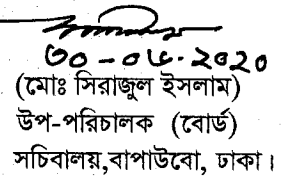 ৩০-০৬-২০২০
(মোঃ সিরাজুল ইসলাম)
উপ-পরিচালক (বোর্ড)
সচিবালয়,বাপাউবো, ঢাকা।